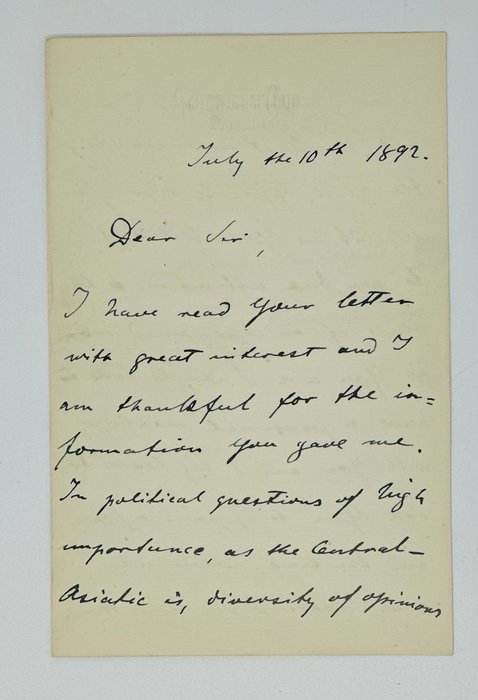 July the 10th 1892.
Dear Sir,
I have read your letter
with great interest and I
am thankful for the in=
formation you gave me.
In political questions of high
importance, as the Central-
Asiatic is, diversity of opinions